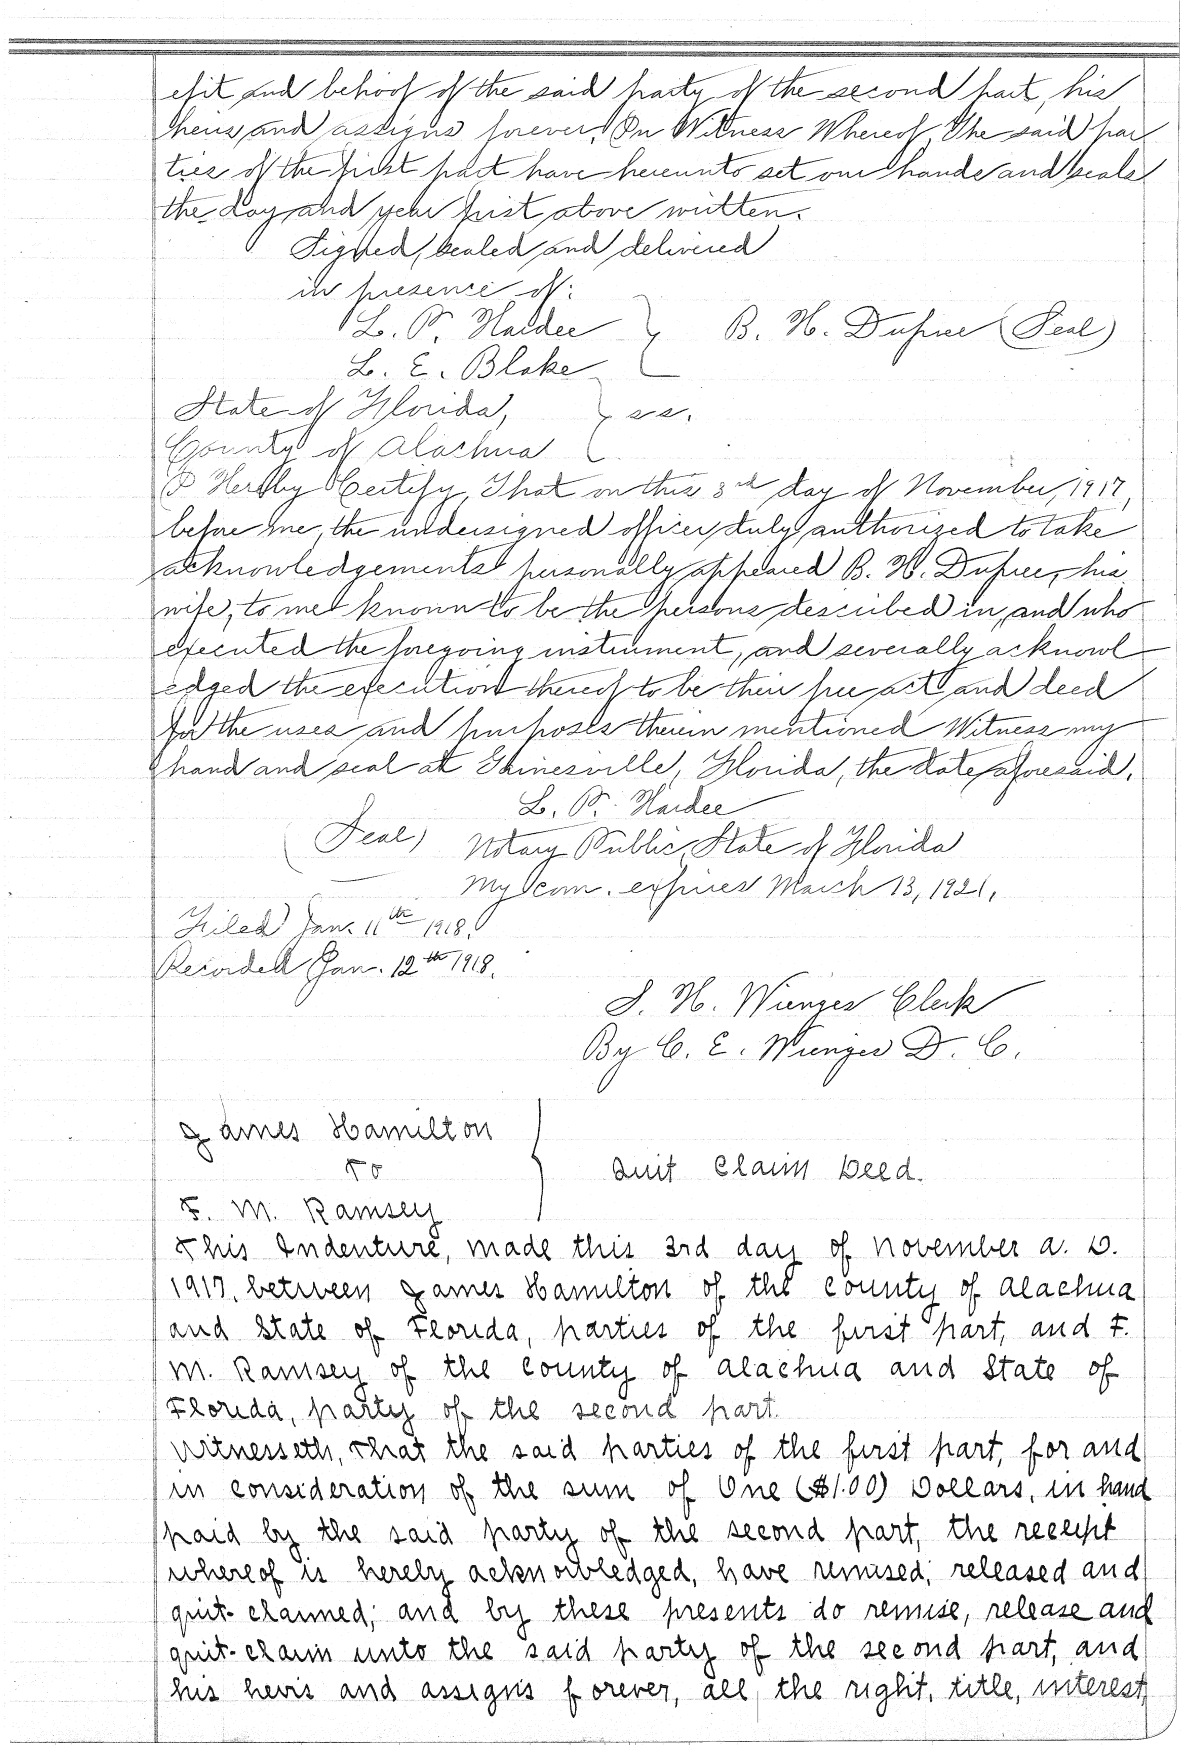 efit and behoof of the said party of the second part, his
heirs and assigns forever. In Witness Whereof, The said par
ties of the first part have hereunto set our hands and seals
the day and year first above written.
Signed, sealed and delivered
in presence of:
L. P. Hardee
B. H. Dupree (Seal)
L. E. Blake
State of Florida,
ss.
County of Alachua
I Hereby Certify, That on this 3rd day of November, 1917,
before me, the undersigned officer duly authorized to take
acknowledgements personally appeared B. H. Dupree, his
wife, to me known to be the persons described in, and who
executed the foregoing instrument, and severally acknowl
edged the execution thereof to be their free act and deed
for the uses and purposes therein mentioned Witness my
hand and seal at Gainesville, Florida, the date aforesaid.
L. P. Hardee
(Seal) Notary Public, State of Florida
My com. expires March 13, 1921.
Filed Jan. 11th 1918.
Recorded Jan. 12th 1918.
S. H. Wienges Clerk
By C. E. Wienges D. C.
James Hamilton
to
Quit Claim Deed.
F. M. Ramsey
This Indenture, made this 3rd day of November A. D.
1917, between James Hamilton of the County of Alachua
and State of Florida, parties of the first part, and F.
M. Ramsey of the County of Alachua and State of
Florida, party of the second part.
Witnesseth, That the said parties of the first part, for and
in consideration of the sum of One ($1.00) Dollars, in hand
paid by the said party of the second part, the receipt
whereof is hereby acknowledged, have remised, released and
quit-claimed; and by these presents do remise, release and
quit-claim unto the said party of the second part, and
his heris and assigns forever, all the right, title, interest,